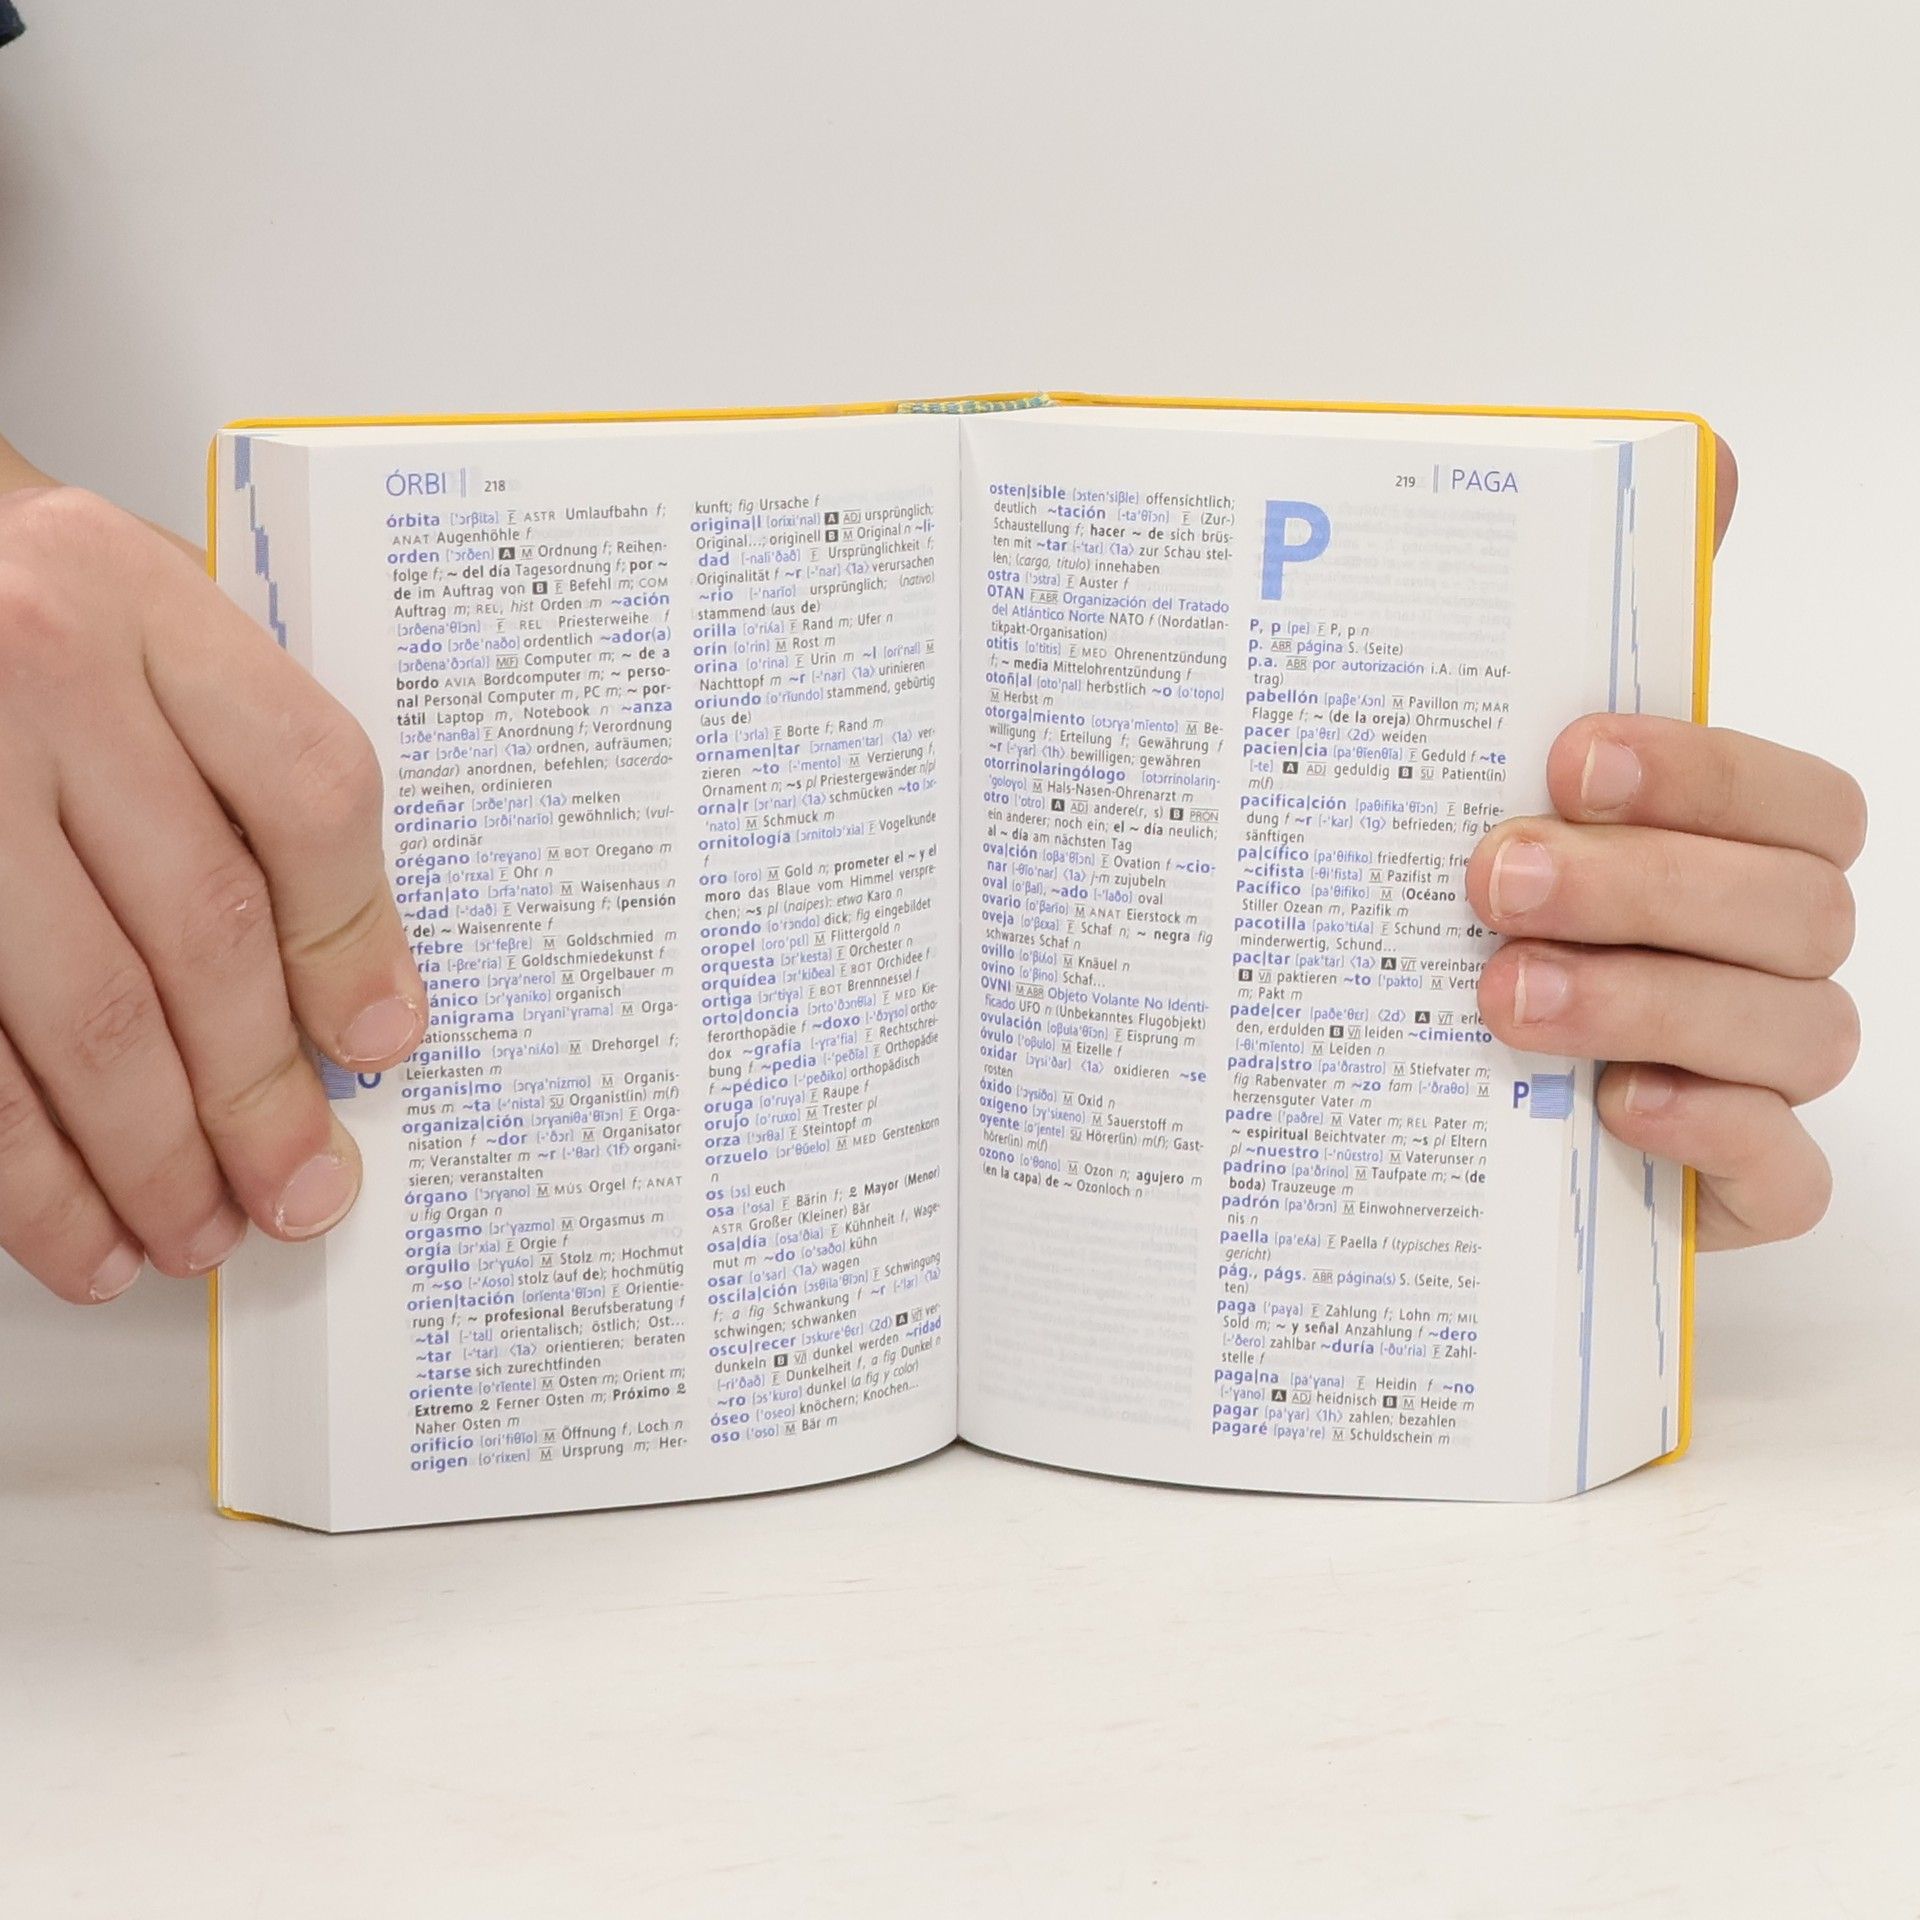 ÓRBI 218
órbita ['ɔrβita] F ASTR Umlaufbahn f;
ANAT Augenhöhle f
orden ['ɔrðen] A M Ordnung f; Reihen-
folge f; ~ del día Tagesordnung f; por ~
de im Auftrag von B F Befehl m; COM
Auftrag m; REL, hist Orden m ~ación
[ɔrðena'θĭɔn] F REL Priesterweihe f
~ado [ɔrðe'naðo] ordentlich ~ador(a)
[ɔrðena'ðɔr(a)] M(F) Computer m; ~ de a
bordo AVIA Bordcomputer m; ~ perso-
nal Personal Computer m, PC m; ~ por-
tátil Laptop m, Notebook n ~anza
[ɔrðe'nanθa] F Anordnung f; Verordnung
~ar [ɔrðe'nar] ⟨1a⟩ ordnen, aufräumen;
(mandar) anordnen, befehlen; (sacerdo-
te) weihen, ordinieren
ordeñar [ɔrðe'ɲar] ⟨1a⟩ melken
ordinario [ɔrði'narĭo] gewöhnlich; (vul-
gar) ordinär
orégano [o'reɣano] M BOT Oregano m
oreja [o'rɛxa] F Ohr n
orfan|ato [ɔrfa'nato] M Waisenhaus n
~dad [-'dað] F Verwaisung f; (pensión
de) ~ Waisenrente f
rfebre [ɔr'feβre] M Goldschmied m
ría [-βre'ria] F Goldschmiedekunst f
ganero [ɔrɣa'nero] M Orgelbauer m
ánico [ɔr'ɣaniko] organisch
anigrama [ɔrɣani'ɣrama] M Orga-
ationsschema n
organillo [ɔrɣa'niʎo] M Drehorgel f;
Leierkasten m
organis|mo [ɔrɣa'nizmo] M Organis-
mus m ~ta [-'nista] SU Organist(in) m(f)
organiza|ción [ɔrɣaniθa'θĭɔn] F Orga-
nisation f ~dor [-'ðɔr] M Organisator
m; Veranstalter m ~r [-'θar] ⟨1f⟩ organi-
sieren; veranstalten
órgano ['ɔrɣano] M MÚS Orgel f; ANAT
u fig Organ n
orgasmo [ɔr'ɣazmo] M Orgasmus m
orgía [ɔr'xia] F Orgie f
orgullo [ɔr'ɣuʎo] M Stolz m; Hochmut
m ~so [-'ʎoso] stolz (auf de); hochmütig
orien|tación [orĭenta'θĭɔn] F Orientie-
rung f; ~ profesional Berufsberatung f
~tal [-'tal] orientalisch; östlich; Ost...
~tar [-'tar] ⟨1a⟩ orientieren; beraten
~tarse sich zurechtfinden
oriente [o'rĭente] M Osten m; Orient m;
Extremo ♀ Ferner Osten m; Próximo ♀
Naher Osten m
orificio [ori'fiθĭo] M Öffnung f, Loch n
origen [o'rixen] M Ursprung m; Her-
kunft; fig Ursache f
origina|l [orixi'nal] A ADJ ursprünglich;
Original...; originell B M Original n ~li-
dad [-nali'ðað] F Ursprünglichkeit f;
Originalität f ~r [-'nar] ⟨1a⟩ verursachen
~rio [-'narĭo] ursprünglich; (nativo)
stammend (aus de)
orilla [o'riʎa] F Rand m; Ufer n
orín [o'rin] M Rost m
orina [o'rina] F Urin m ~l [ori'nal] M
Nachttopf m ~r [-'nar] ⟨1a⟩ urinieren
oriundo [o'rĭundo] stammend, gebürtig
(aus de)
orla ['ɔrla] F Borte f; Rand m
ornamen|tar [ɔrnamen'tar] ⟨1a⟩ ver-
zieren ~to [-'mento] M Verzierung f,
Ornament n; ~s pl Priestergewänder n/pl
orna|r [ɔr'nar] ⟨1a⟩ schmücken ~to [ɔr-
'nato] M Schmuck m
ornitología [ɔrnitolɔ'xia] F Vogelkunde
f
oro [oro] M Gold n; prometer el ~ y el
moro das Blaue vom Himmel verspre-
chen; ~s pl (naipes): etwa Karo n
orondo [o'rɔndo] dick; fig eingebildet
oropel [oro'pɛl] M Flittergold n
orquesta [ɔr'kesta] F Orchester n
orquídea [ɔr'kiðea] F BOT Orchidee f
ortiga [ɔr'tiɣa] F BOT Brennnessel f
orto|doncia [ɔrto'ðɔnθĭa] F MED Kie-
ferorthopädie f ~doxo [-'ðɔɣso] ortho-
dox ~grafía [-ɣra'fia] F Rechtschrei-
bung f ~pedia [-'peðĭa] F Orthopädie
f ~pédico [-'peðiko] orthopädisch
oruga [o'ruɣa] F Raupe f
orujo [o'ruxo] M Trester pl
orza ['ɔrθa] F Steintopf m
orzuelo [ɔr'θŭelo] M MED Gerstenkorn
n
os [ɔs] euch
osa ['osa] F Bärin f; ♀ Mayor (Menor)
ASTR Großer (Kleiner) Bär
osa|día [osa'ðia] F Kühnheit f, Wage-
mut m ~do [o'saðo] kühn
osar [o'sar] ⟨1a⟩ wagen
oscila|ción [ɔsθila'θĭɔn] F Schwingung
f; a fig Schwankung f ~r [-'lar] ⟨1a⟩
schwingen; schwanken
oscu|recer [ɔskure'θɛr] ⟨2d⟩ A V/T ver-
dunkeln B V/I dunkel werden ~ridad
[-ri'ðað] F Dunkelheit f, a fig Dunkel n
~ro [ɔs'kuro] dunkel (a fig y color)
óseo ['oseo] knöchern; Knochen...
oso ['oso] M Bär m
219 PAGA
osten|sible [ɔsten'siβle] offensichtlich;
deutlich ~tación [-ta'θĭɔn] F (Zur-)
Schaustellung f; hacer ~ de sich brüs-
ten mit ~tar [-'tar] ⟨1a⟩ zur Schau stel-
len; (cargo, título) innehaben
ostra ['ɔstra] F Auster f
OTAN F ABR Organización del Tratado
del Atlántico Norte NATO f (Nordatlan-
tikpakt-Organisation)
otitis [o'titis] F MED Ohrenentzündung
f; ~ media Mittelohrentzündung f
otoñ|al [oto'ɲal] herbstlich ~o [o'toɲo]
M Herbst m
otorga|miento [otɔrɣa'mĭento] M Be-
willigung f; Erteilung f; Gewährung f
~r [-'ɣar] ⟨1h⟩ bewilligen; gewähren
otorrinolaringólogo [otɔrrinolariŋ-
'goloɣo] M Hals-Nasen-Ohrenarzt m
otro ['otro] A ADJ andere(r, s) B PRON
ein anderer; noch ein; el ~ día neulich;
al ~ día am nächsten Tag
ova|ción [oβa'θĭɔn] F Ovation f ~cio-
nar [-θĭo'nar] ⟨1a⟩ j-m zujubeln
oval [o'βal], ~ado [-'laðo] oval
ovario [o'βarĭo] M ANAT Eierstock m
oveja [o'βɛxa] F Schaf n; ~ negra fig
schwarzes Schaf n
ovillo [o'βiʎo] M Knäuel n
ovino [o'βino] Schaf...
OVNI M ABR Objeto Volante No Identi-
ficado UFO n (Unbekanntes Flugobjekt)
ovulación [oβula'θĭɔn] F Eisprung m
óvulo ['oβulo] M Eizelle f
oxidar [ɔɣsi'ðar] ⟨1a⟩ oxidieren ~se
rosten
óxido ['ɔɣsiðo] M Oxid n
oxígeno [ɔɣ'sixeno] M Sauerstoff m
oyente [o'jente] SU Hörer(in) m(f); Gast-
hörer(in) m(f)
ozono [o'θono] M Ozon n; agujero m
(en la capa) de ~ Ozonloch n
P
P, p [pe] F P, p n
p. ABR página S. (Seite)
p.a. ABR por autorización i.A. (im Auf-
trag)
pabellón [paβe'ʎɔn] M Pavillon m; MAR
Flagge f; ~ (de la oreja) Ohrmuschel f
pacer [pa'θɛr] ⟨2d⟩ weiden
pacien|cia [pa'θĭenθĭa] F Geduld f ~te
[-te] A ADJ geduldig B SU Patient(in)
m(f)
pacifica|ción [paθifika'θĭɔn] F Befrie-
dung f ~r [-'kar] ⟨1g⟩ befrieden; fig be
sänftigen
pa|cífico [pa'θifiko] friedfertig; frie
~cifista [-θi'fista] M Pazifist m
Pacífico [pa'θifiko] M (Océano
Stiller Ozean m, Pazifik m
pacotilla [pako'tiʎa] F Schund m; de ~
minderwertig, Schund...
pac|tar [pak'tar] ⟨1a⟩ A V/T vereinbare
B V/I paktieren ~to ['pakto] M Vertr
m; Pakt m
pade|cer [paðe'θɛr] ⟨2d⟩ A V/T erle
den, erdulden B V/I leiden ~cimiento
[-θi'mĭento] M Leiden n
padra|stro [pa'ðrastro] M Stiefvater m;
fig Rabenvater m ~zo fam [-'ðraθo] M
herzensguter Vater m
padre ['paðre] M Vater m; REL Pater m;
~ espiritual Beichtvater m; ~s pl Eltern
pl ~nuestro [-'nŭɛstro] M Vaterunser n
padrino [pa'ðrino] M Taufpate m; ~ (de
boda) Trauzeuge m
padrón [pa'ðrɔn] M Einwohnerverzeich-
nis n
paella [pa'eʎa] F Paella f (typisches Reis-
gericht)
pág., págs. ABR página(s) S. (Seite, Sei-
ten)
paga ['paɣa] F Zahlung f; Lohn m; MIL
Sold m; ~ y señal Anzahlung f ~dero
[-'ðero] zahlbar ~duría [-ðu'ria] F Zahl-
stelle f
paga|na [pa'ɣana] F Heidin f ~no
[-'ɣano] A ADJ heidnisch B M Heide m
pagar [pa'ɣar] ⟨1h⟩ zahlen; bezahlen
pagaré [paɣa're] M Schuldschein m
P